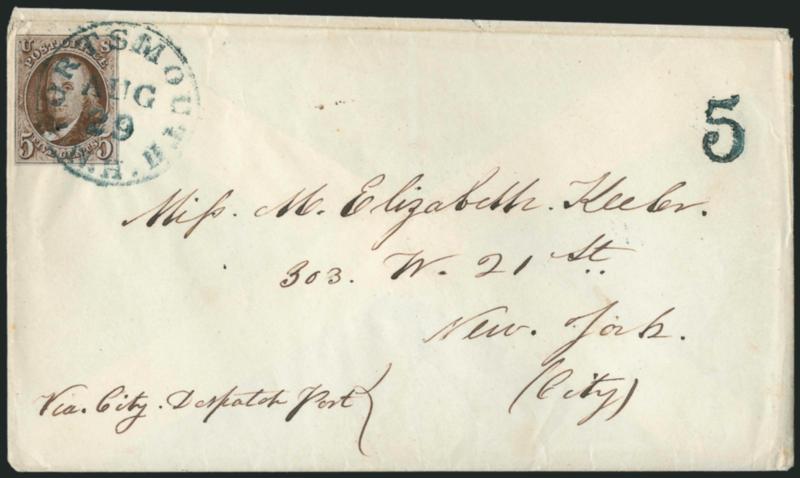 U S
POST OFFICE
5 FIVE CENTS 5
PORTSMOUTH
AUG
29
N.H.
5
Miss. M. Elizabeth. Keeler.
303. W. 21 St.
New. York.
(City)
Via. City. Despatch Post